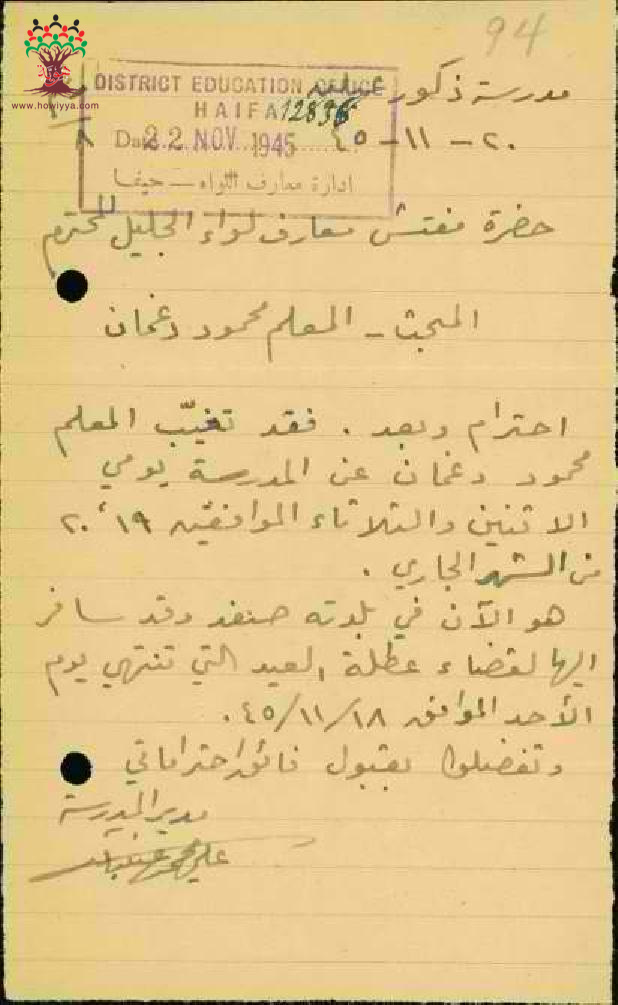 94
www.howiyya.com
DISTRICT EDUCATION OFFICE
HAIFA 12836
Date 22 NOV 1945
ادارة معارف اللواء - حيفا
مدرسة ذكور
٢٠ - ١١ - ٤٥
حضرة مفتش معارف لواء الجليل المحترم
المبحث - المعلم محمود دغمان
احترام وبعد . فقد تغيّب المعلم
محمود دغمان عن المدرسة يومي
الاثنين والثلاثاء الموافقين ١٩، ٢٠
من الشهر الجاري .
هو الآن في بلدته صفد وقد سافر
اليها لقضاء عطلة العيد التي تنتهي يوم
الأحد الموافق ١٨/١١/٤٥.
وتفضلوا بقبول فائق احتراماتي
مدير المدرسة
علي محمد